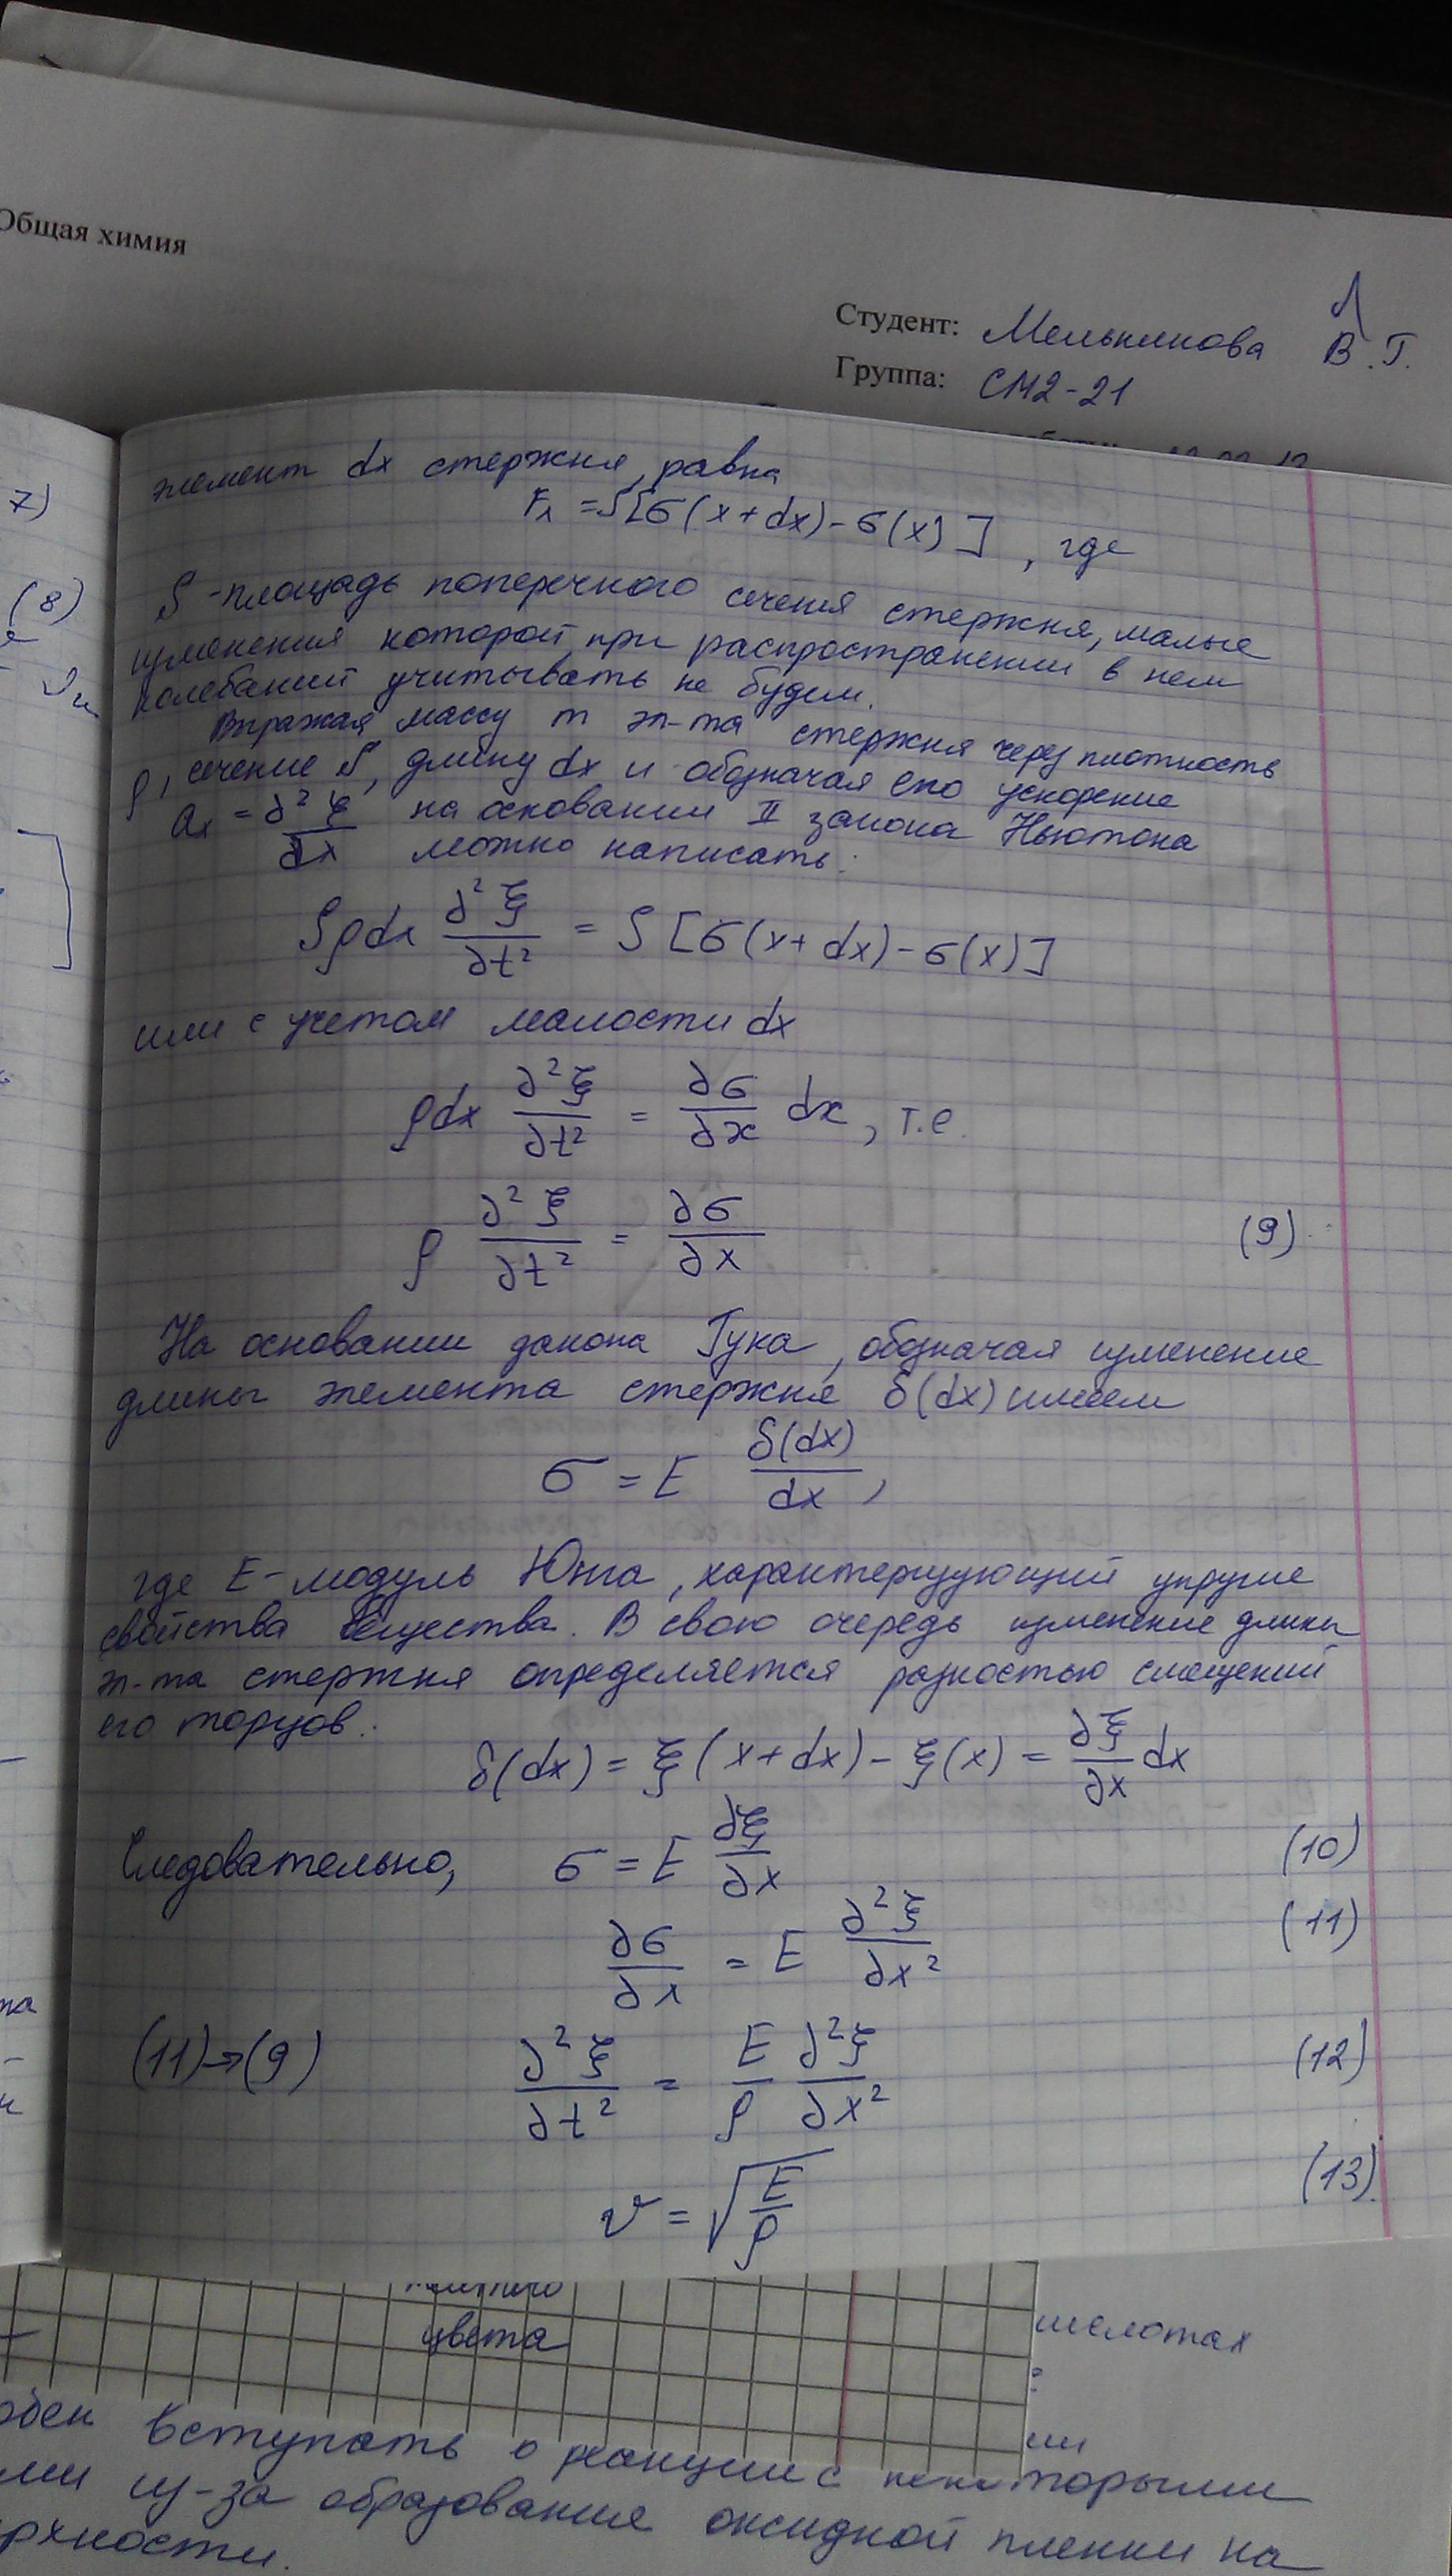 Общая химия
Студент: Мельникова В.Г.
Группа: СМ2-21
7)
(8)
элемент dx стержня, равна
Fx = S[σ(x+dx) - σ(x)], где
S - площадь поперечного сечения стержня, малые
изменения которой при распространении в нем
колебаний учитывать не будем.
Выражая массу m эл-та стержня через плотность
ρ, сечение S, длину dx и обозначая его ускорение
aₓ = ∂²ξ/∂x на основании II закона Ньютона
можно написать:
Sρdx ∂²ξ/∂t² = S[σ(x+dx) - σ(x)]
или с учетом малости dx
ρdx ∂²ξ/∂t² = ∂σ/∂x dx, т.е.
ρ ∂²ξ/∂t² = ∂σ/∂x (9)
На основании закона Гука, обозначая изменение
длины элемента стержня δ(dx) имеем
σ = E δ(dx)/dx,
где E - модуль Юнга, характеризующий упругие
свойства вещества. В свою очередь изменение длины
эл-та стержня определяется разностью смещений
его торцов.
δ(dx) = ξ(x+dx) - ξ(x) = ∂ξ/∂x dx
Следовательно, σ = E ∂ξ/∂x (10)
∂σ/∂x = E ∂²ξ/∂x² (11)
(11)→(9) ∂²ξ/∂t² = E/ρ ∂²ξ/∂x² (12)
v = √(E/ρ) (13)
цвета
вступать в реакции с некоторыми
из-за образования оксидной пленки на